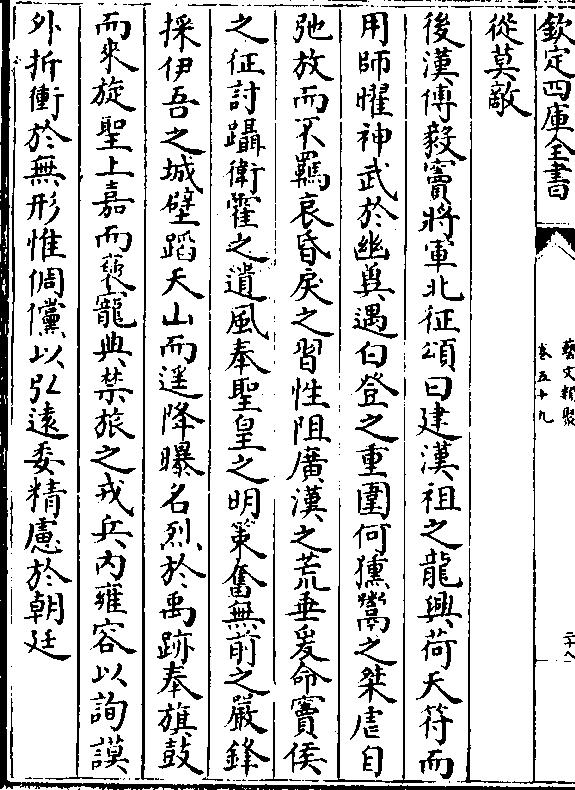 欽定四庫全書
藝文類聚
卷五十九
二十八
從莫敵
後漢傅毅竇將軍北征頌曰建漢祖之龍興荷天符而
用師曜神武於幽冀遇白登之重圍何獯鬻之桀虐自
弛放而不羈哀昏戾之習性阻廣漢之荒垂爰命竇侯
之征討躡衛霍之遺風奉聖皇之明策奮無前之嚴鋒
採伊吾之城壁蹈天山而遥降曝名烈於禹跡奉旗鼓
而來旋聖上嘉而襃寵典禁旅之戎兵内雍容以詢謨
外折衝於無形惟倜儻以弘遠委精慮於朝廷